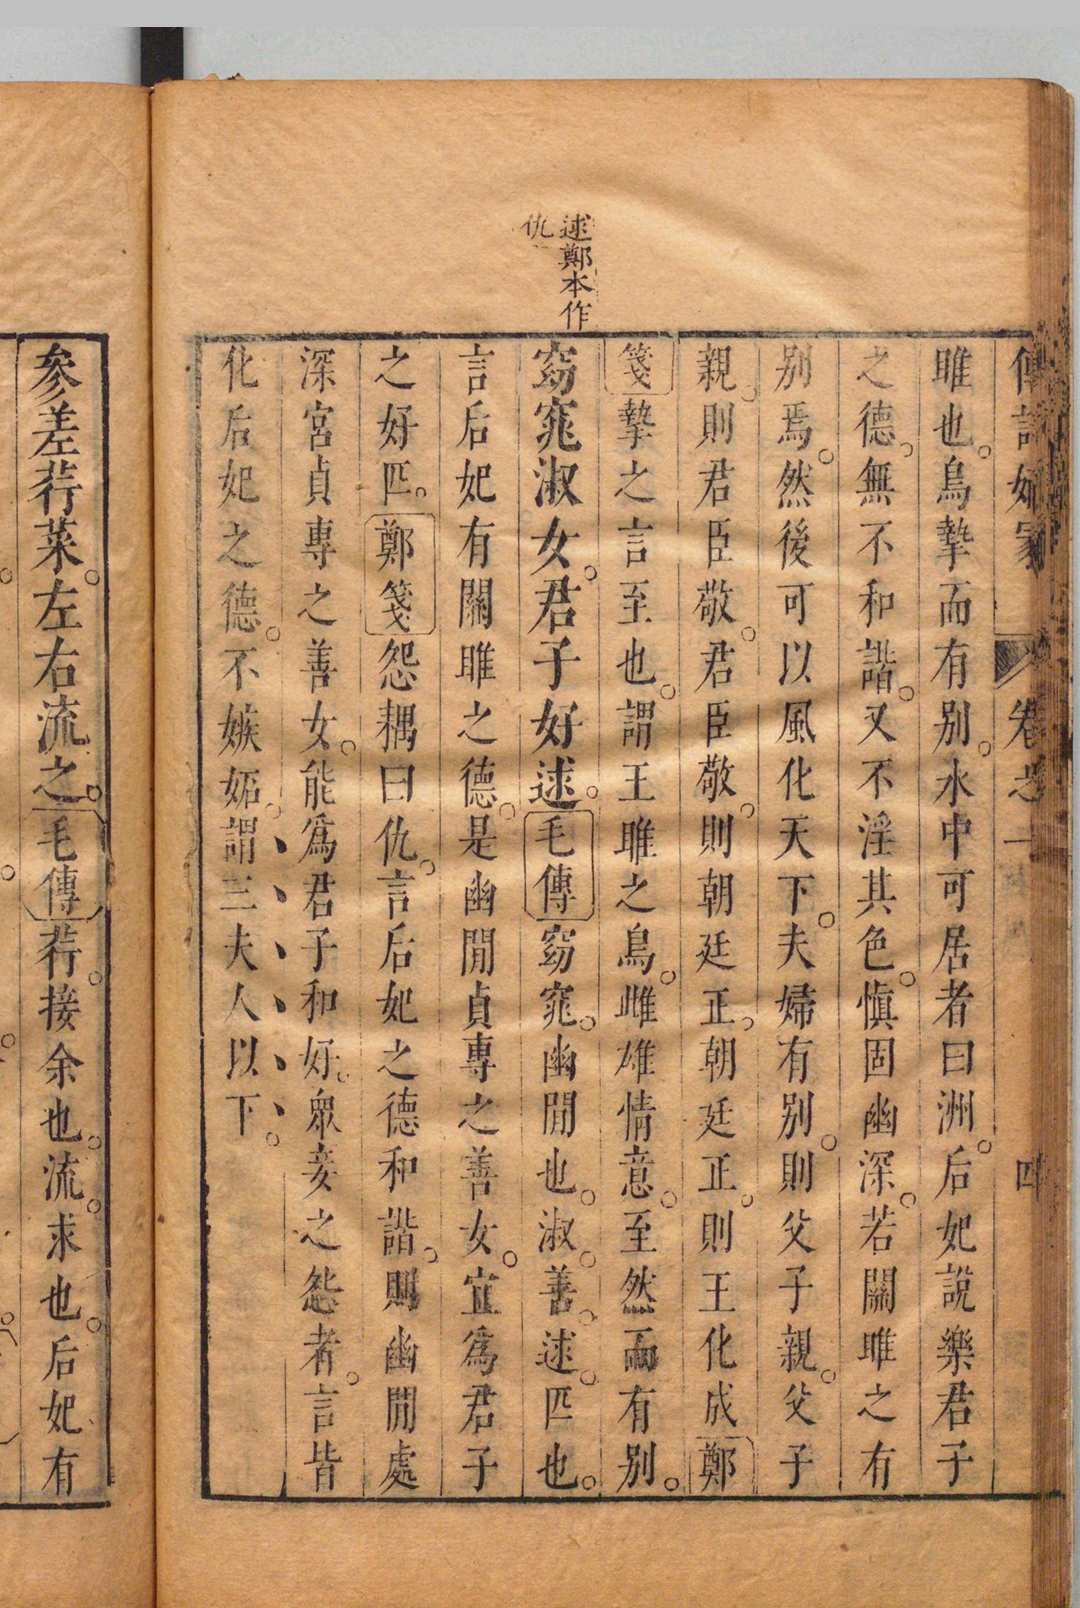 傳詩嫡冢 卷之一 四
雎也。鳥摯而有別。水中可居者曰洲。后妃說樂君子
之德。無不和諧。又不淫其色。慎固幽深。若關雎之有
別焉。然後可以風化天下。夫婦有別。則父子親。父子
親。則君臣敬。君臣敬。則朝廷正。朝廷正。則王化成鄭
箋摯之言至也。謂王雎之鳥。雌雄情意。至然而有別。
逑鄭本作
仇
窈窕淑女。君子好逑。毛傳窈窕。幽閒也。淑。善。逑。匹也。
言后妃有關雎之德。是幽閒貞專之善女。宜爲君子
之好匹。鄭箋怨耦曰仇。言后妃之德和諧。則幽閒處
深宮貞專之善女。能爲君子和好。衆妾之怨者。言皆
化后妃之德。不嫉妬。謂三夫人以下。
參差荇菜。左右流之。毛傳荇。接余也。流。求也。后妃有